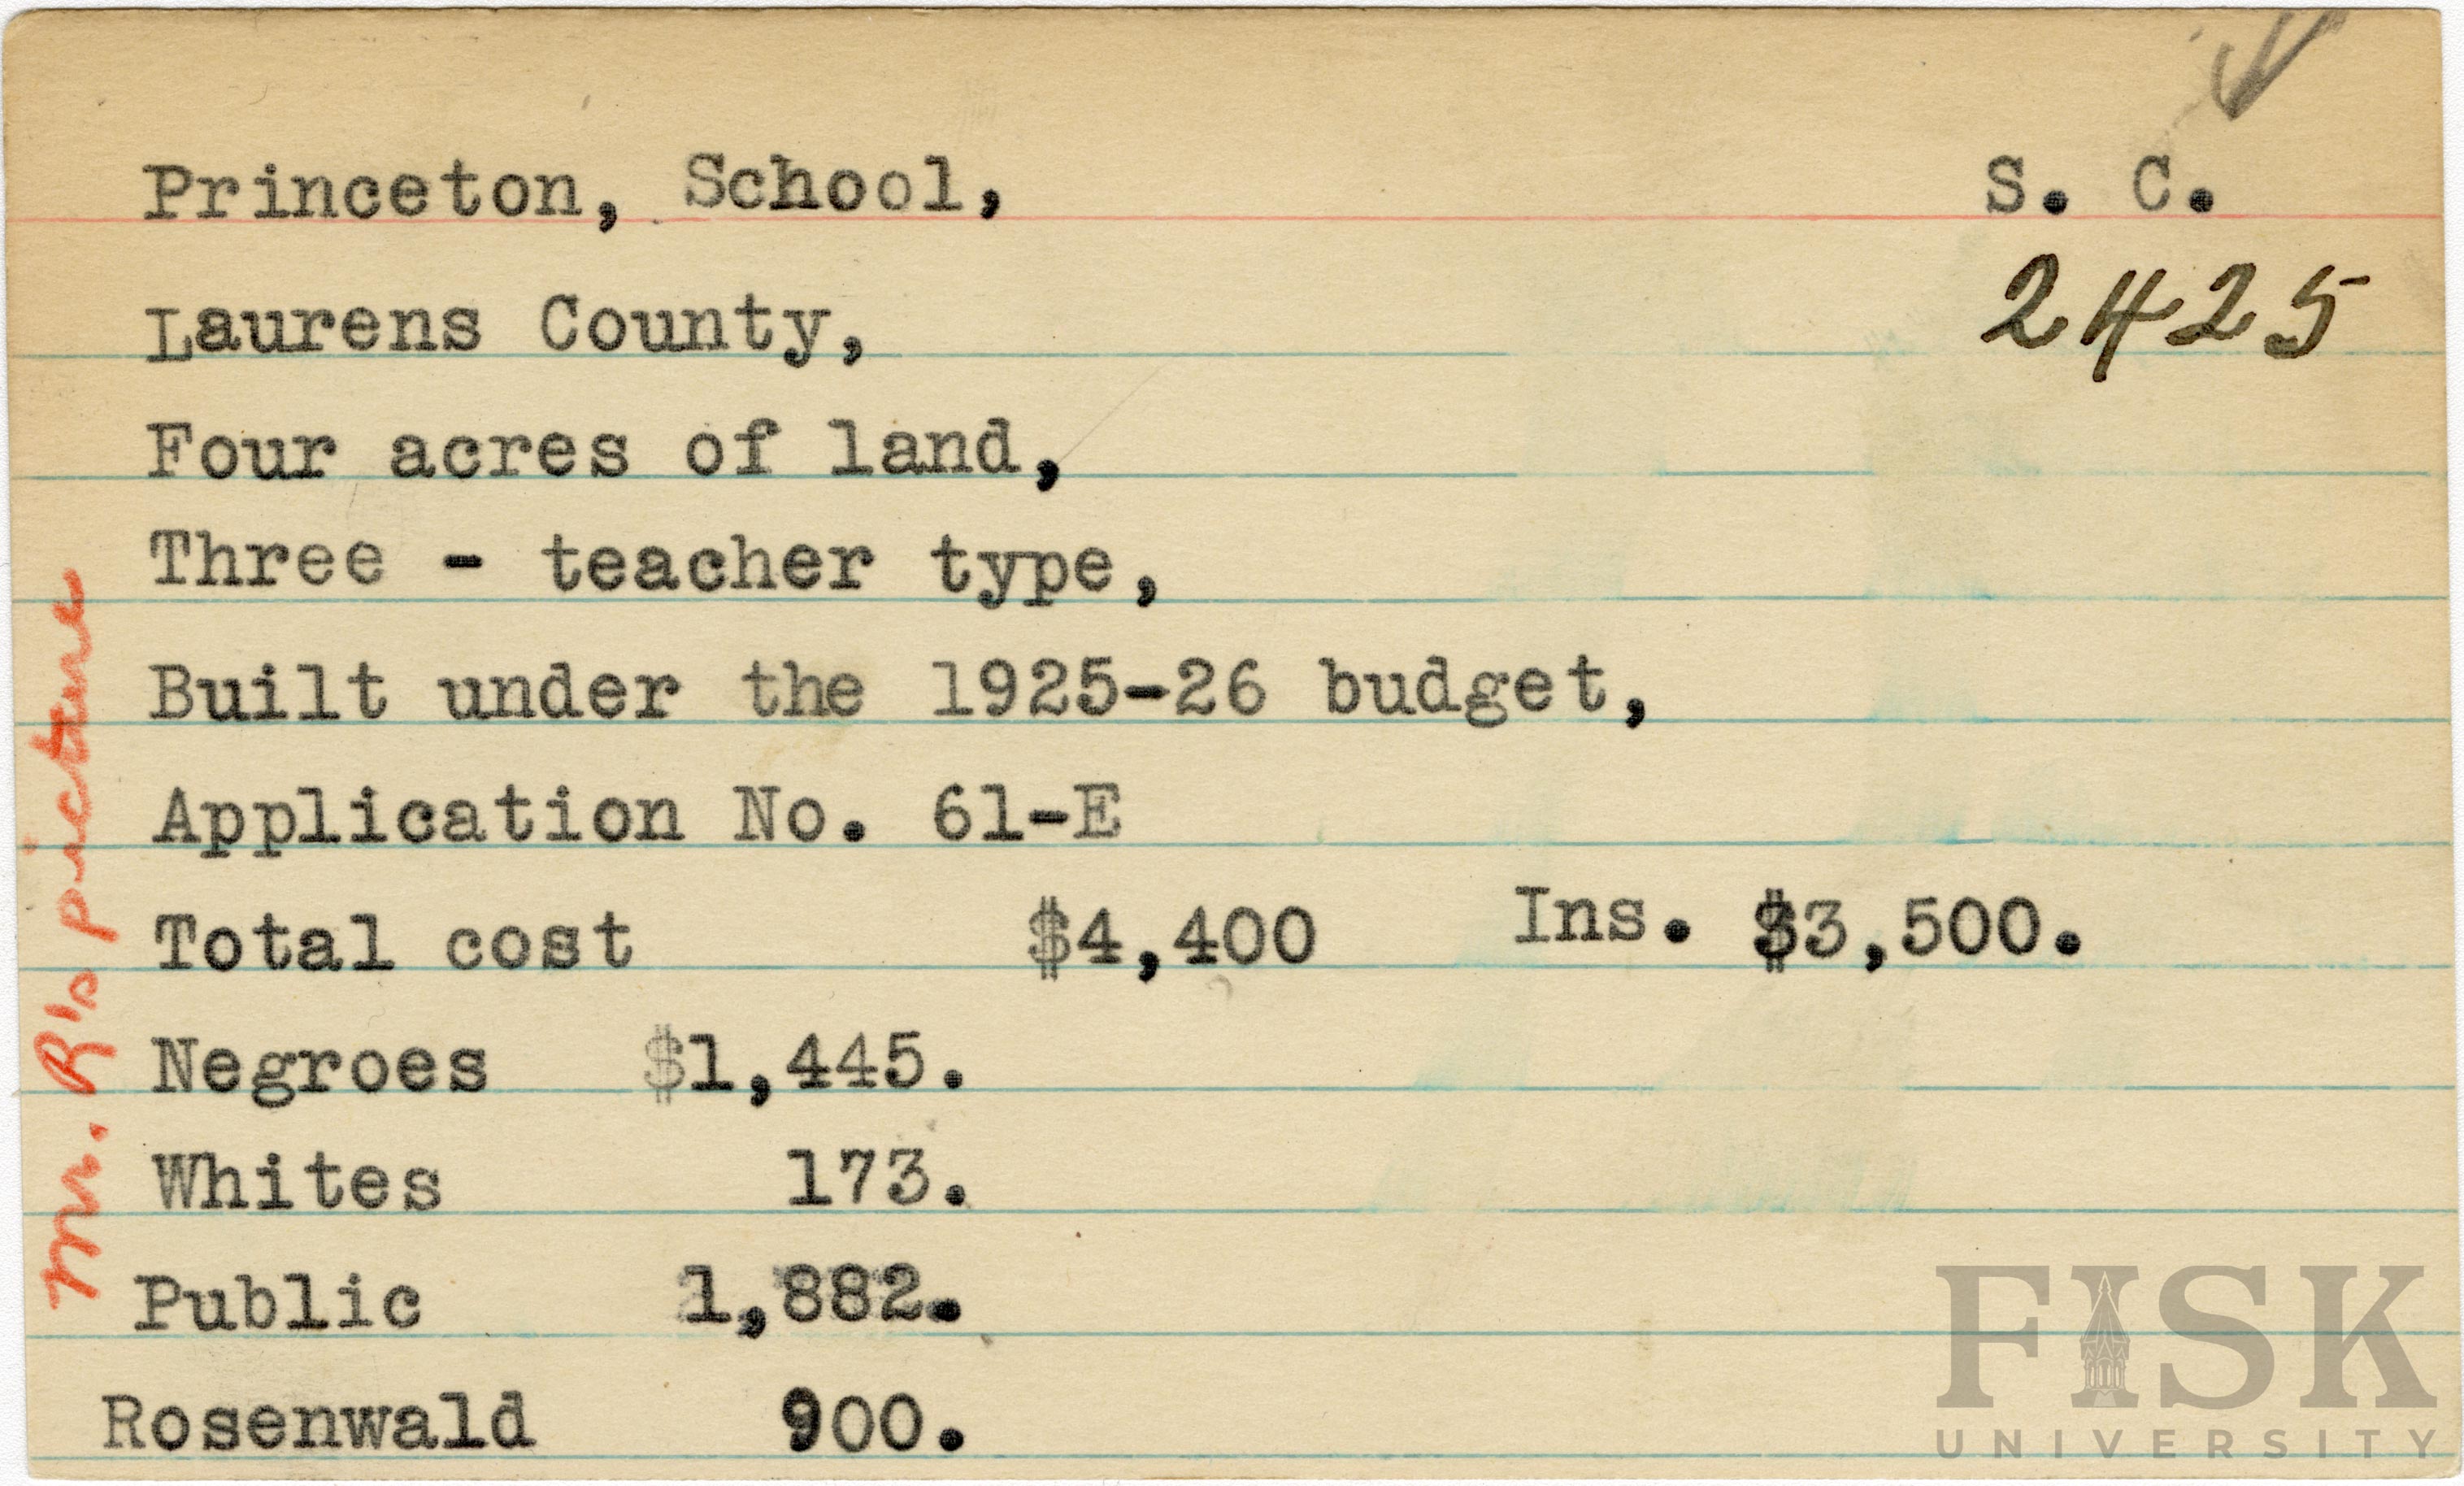 Princeton, School, S. C.
2425
Laurens County,
Four acres of land,
Three - teacher type,
Built under the 1925-26 budget,
Application No. 61-E
Total cost $4,400 Ins. $3,500.
Negroes $1,445.
Whites 173.
Public 1,882.
Rosenwald 900.
Mr. R's picture
FISK
UNIVERSITY